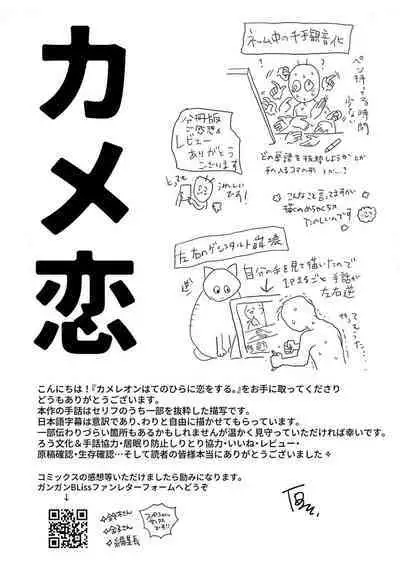 カメ恋
ネーム中の千手観音化
ペン持ってる時間
少ない
どの単語を抜粋しようかとか
分冊版
ご感想&
レビュー
ありがとう
ございます
とっても
うれしい
です!
こんなこと言ってますが
描くのめちゃくちゃ
たのしいのです
左右のゲシュタルト崩壊
自分の手を見て描いたので
1Pまるごと手話が
左右逆
こんにちは!『カメレオンはてのひらに恋をする。』をお手に取ってくださり
どうもありがとうございます。
本作の手話はセリフのうち一部を抜粋した描写です。
日本語字幕は意訳であり、わりと自由に描かせてもらっています。
一部伝わりづらい箇所もあるかもしれませんが温かく見守っていただければ幸いです。
ろう文化&手話協力・居眠り防止しりとり協力・いいね・レビュー・
原稿確認・生存確認…そして読者の皆様本当にありがとうございました✧
コミックスの感想等いただけましたら励みになります。
ガンガンBLissファンレターフォームへどうぞ
↓